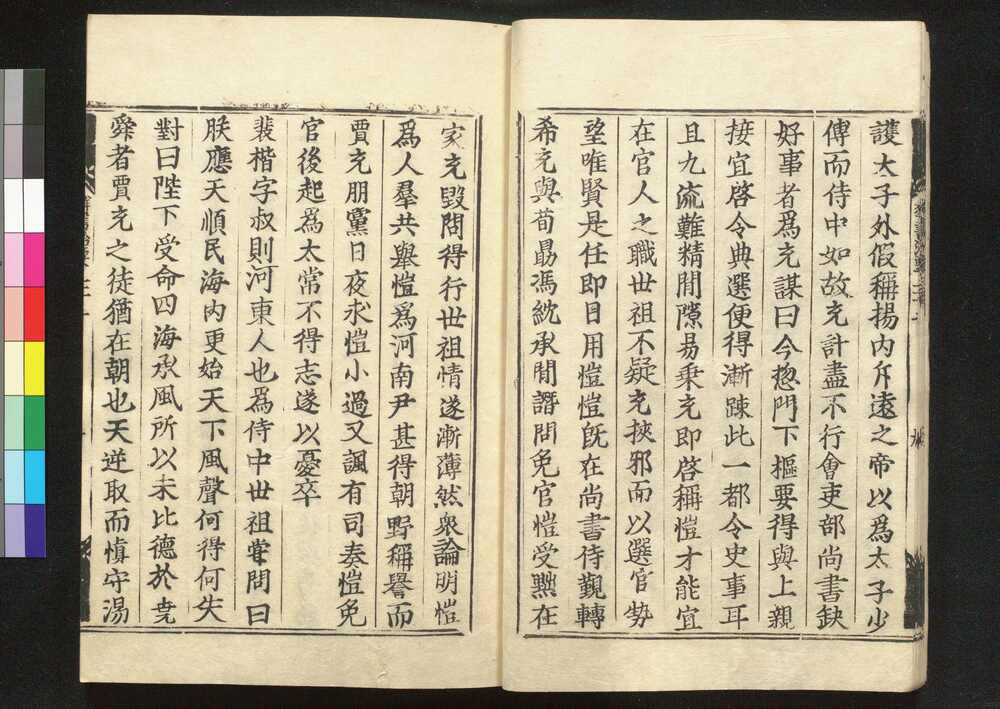 護太子外假稱揚内斥遠之帝以爲太子少
傅而侍中如故充計盡不行會吏部尚書缺
好事者爲充謀曰今揔門下樞要得與上親
接宜啓令典選便得漸踈此一都令史事耳
且九流難精閒隙易乗充即啓稱愷才能宜
在官人之職世祖不疑充挾邪而以選官勢
望唯賢是任即日用愷愷旣在尚書侍覲轉
希充與荀勗馮紞承閒譖問免官愷受黜在
家充毀問得行世祖情遂漸薄然衆論明愷
爲人羣共舉愷爲河南尹甚得朝野稱譽而
賈充朋黨日夜求愷小過又諷有司奏愷免
官後起爲太常不得志遂以憂卒
裴楷字叔則河東人也爲侍中世祖甞問曰
朕應天順民海内更始天下風聲何得何失
對曰陛下受命四海承風所以未比德於尭
舜者賈充之徒猶在朝也天逆取而慎守湯